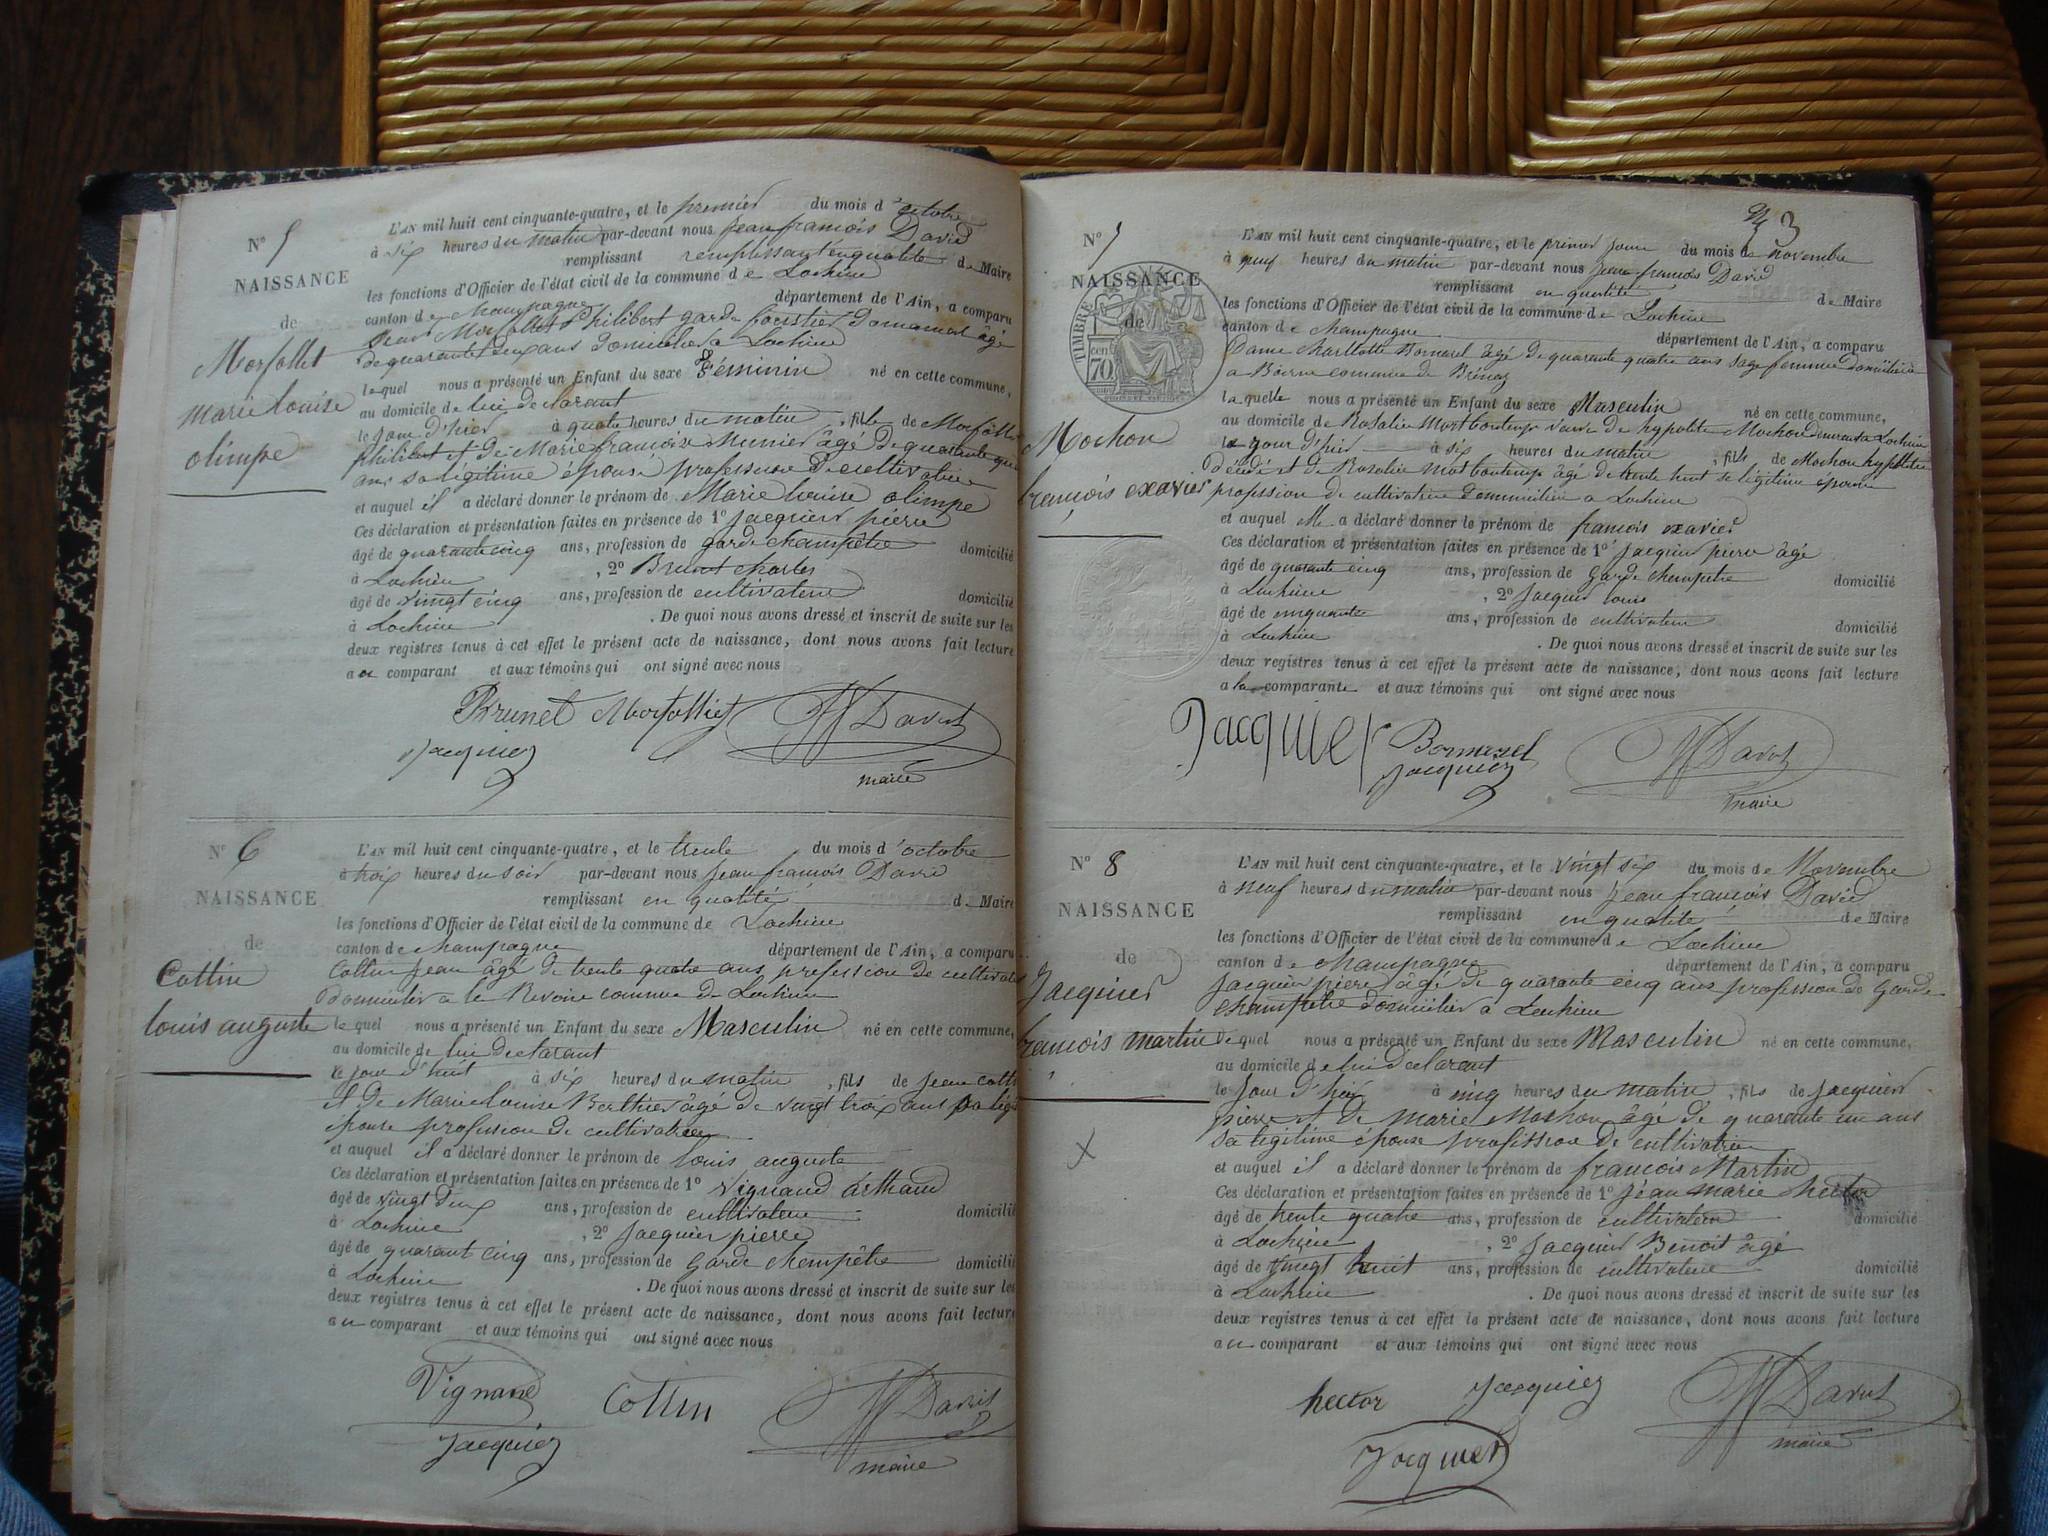 N° 5
NAISSANCE
de
Morfollet
marie louise
olimpe
L'AN mil huit cent cinquante-quatre, et le premier du mois d'octobre
à six heures du matin par-devant nous Jean françois David
remplissant en qualité de Maire
les fonctions d'Officier de l'état civil de la commune de Lochieu
canton de champagne département de l'Ain, a comparu
Morfollet Philibert garde forestier Domanial âgé
de quarante deux ans domicilié à Lochieu
lequel nous a présenté un Enfant du sexe Féminin né en cette commune,
au domicile de lui declarant
le jour d'hier à quatre heures du matin, fille de Morfollet
philibert et de Marie françoise Munier âgé de quarante
ans sa légitime épouse profession de cultivatrice
et auquel il a déclaré donner le prénom de Marie louise olimpe
Ces déclaration et présentation faites en présence de 1° Jacquier pierre
âgé de quarante cinq ans, profession de garde champêtre domicilié
à Lochieu, 2° Brunet charles
âgé de vingt cinq ans, profession de cultivateur domicilié
à Lochieu. De quoi nous avons dressé et inscrit de suite sur les
deux registres tenus à cet effet le présent acte de naissance, dont nous avons fait lecture
au comparant et aux témoins qui ont signé avec nous
Brunet Morfollet David
Jacquier
maire
N° 6
NAISSANCE
de
Cottin
louis auguste
L'AN mil huit cent cinquante-quatre, et le trente du mois d'octobre
à trois heures du soir par-devant nous Jean françois David
remplissant en qualité de Maire
les fonctions d'Officier de l'état civil de la commune de Lochieu
canton de champagne département de l'Ain, a comparu
Cottin Jean âgé de trente quatre ans profession de cultivateur
domicilier a le Revoire commune de Lochieu
lequel nous a présenté un Enfant du sexe Masculin né en cette commune,
au domicile de lui declarant
le jour d'huit à six heures du matin, fils de jean cottin
et de Marie louise Berthier âgé de vingt trois ans sa légi
epouse profession de cultivatrice
et auquel il a déclaré donner le prénom de louis auguste
Ces déclaration et présentation faites en présence de 1° Vignand
âgé de vingt deux ans, profession de cultivateur domicilié
à Lochieu, 2° Jacquier pierre
âgé de quarant cinq ans, profession de Garde champêtre domicilié
à Lochieu. De quoi nous avons dressé et inscrit de suite sur les
deux registres tenus à cet effet le présent acte de naissance, dont nous avons fait lecture
au comparant et aux témoins qui ont signé avec nous
Vignand Cottin David
Jacquier maire
3
N° 7
NAISSANCE
de
TIMBRE
70 cen
Mochon
françois exavier
L'AN mil huit cent cinquante-quatre, et le primier jour du mois de novembre
à neuf heures du matin par-devant nous Jean françois David
remplissant en quatité de Maire
les fonctions d'Officier de l'état civil de la commune de Lochieu
canton de champagne département de l'Ain, a comparu
Dame Charllotte Bonnerel âgé de quarante quatre ans sage femme domicilièe
a commune de Brénaz
laquelle nous a présenté un Enfant du sexe Masculin né en cette commune,
au domicile de Rosalie Montbontemp veuve de hypolite Mochon demeurant a Lochieu
le jour d'hier à six heures du matin, fils de Mochon hypolite
Décédé et de Rosalie Montbontemp âgé de trente huit sa légitime epouse
profession de cultivatrice domicilièe a Lochieu
et auquel elle a déclaré donner le prénom de françois exavier
Ces déclaration et présentation faites en présence de 1° Jacquier pierre âgé
âgé de quarante cinq ans, profession de Garde champetre domicilié
à Lochieu, 2° Jacquier louis
âgé de cinquante ans, profession de cultivateur domicilié
à Lochieu. De quoi nous avons dressé et inscrit de suite sur les
deux registres tenus à cet effet le présent acte de naissance, dont nous avons fait lecture
a la comparante et aux témoins qui ont signé avec nous
Jacquier Bonnerel David
Jacquier
maire
N° 8
NAISSANCE
de
Jacquier
françois martin
X
L'AN mil huit cent cinquante-quatre, et le vingt six du mois de Novembre
à neuf heures du matin par-devant nous Jean françois David
remplissant en qualité de Maire
les fonctions d'Officier de l'état civil de la commune de Lochieu
canton de champagne département de l'Ain, a comparu
Jacquier pierre âgé de quarante cinq ans profession de Garde
champêtre domicilier à Lochieu
lequel nous a présenté un Enfant du sexe Masculin né en cette commune,
au domicile de lui declarant
le jour d'hier à cinq heures du matin, fils de Jacquier
pierre et de marie Mochon âgé de quarante un ans
sa légitime épouse profession de cultivatrice
et auquel il a déclaré donner le prénom de françois Martin
Ces déclaration et présentation faites en présence de 1° Jean marie hector
âgé de trente quatre ans, profession de cultivateur domicilié
à Lochieu, 2° Jacquier Benoit âgé
âgé de vingt huit ans, profession de cultivateur domicilié
à Lochieu. De quoi nous avons dressé et inscrit de suite sur les
deux registres tenus à cet effet le présent acte de naissance, dont nous avons fait lecture
au comparant et aux témoins qui ont signé avec nous
hector Jacquier David
Jacquier maire